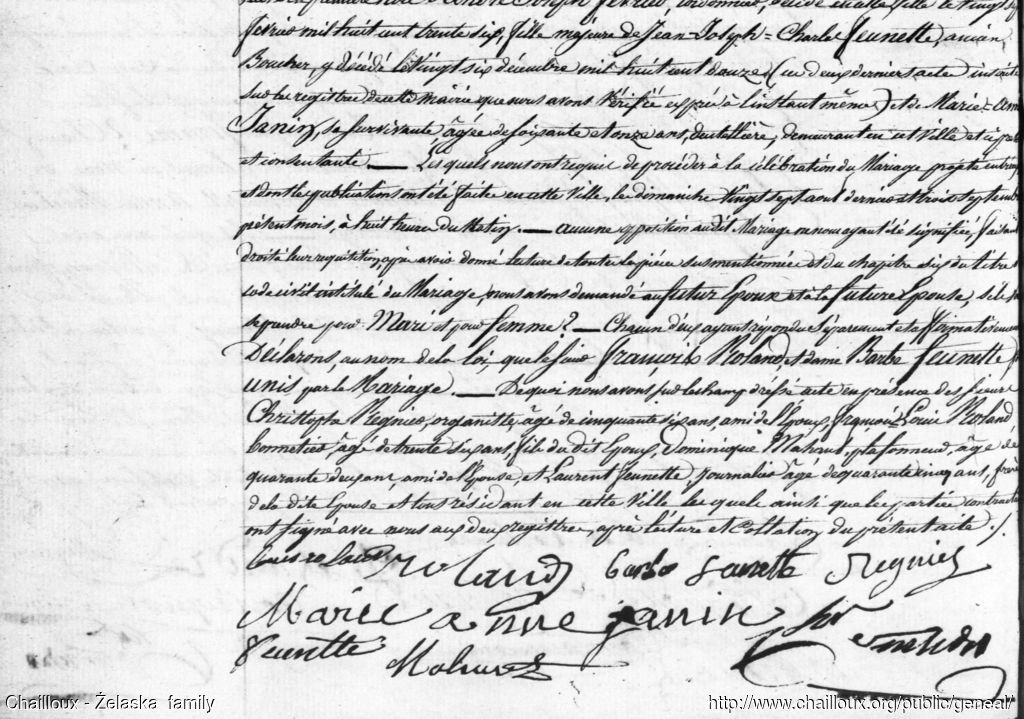 février mil huit cent trente six, fille majeure de Jean-Joseph-Charles Jeunette, ancien
Boucher, y décédé le vingt six décembre mil huit cent douze (ces deux derniers actes inscrits
sur les registres de cette mairie que nous avons vérifiés exprès à l'instant même) et de Marie-Anne
Janin, sa survivante âgée de soixante et onze ans, dentellière, demeurant en cette Ville et ci présente
et consentante — Lesquels nous ont requis de procéder à la célébration du Mariage projeté entr'eux
et dont les publications ont été faites en cette Ville, les dimanches vingt sept aout dernier et trois septembre
présent mois, à huit heures du Matin. — aucune opposition audit Mariage ne nous ayant été signifiée, faisant
droit à leur réquisition, après avoir donné lecture de toutes les pièces susmentionnées et du chapitre six du titre
code civil intitulé du Mariage, nous avons demandé au futur Epoux et à la future Epouse, s'ils
se prendre pour Mari et pour femme? — Chacun d'eux ayant répondu séparément et affirmativement
Déclarons, au nom de la loi, que le sieur françois Roland, et dame Barbe Jeunette
unis par le Mariage. — De quoi nous avons sur le champ dressé acte en présence des sieurs
Christophe Regnier, organiste, âgé de cinquante six ans, ami de l'Epoux, Louis Roland
bonnetier, âgé de trente six ans, fils du dit Epoux, Dominique Mahout, plafonneur, âgé de
quarante deux ans, ami de l'Epouse, et Laurent Jeunette, journalier âgé de quarante cinq ans, frère
de la dite Epouse et tous résidant en cette Ville lesquels ainsi que les parties contractantes
ont signé avec nous aux deux registres après lecture et collation du présent acte ./.
Louis rolland roland Barbe Jeunette Regnier
Marie anne janin
Jeunette Mahout
Chailloux - Żelaska family
http://www.chailloux.org/public/geneal/